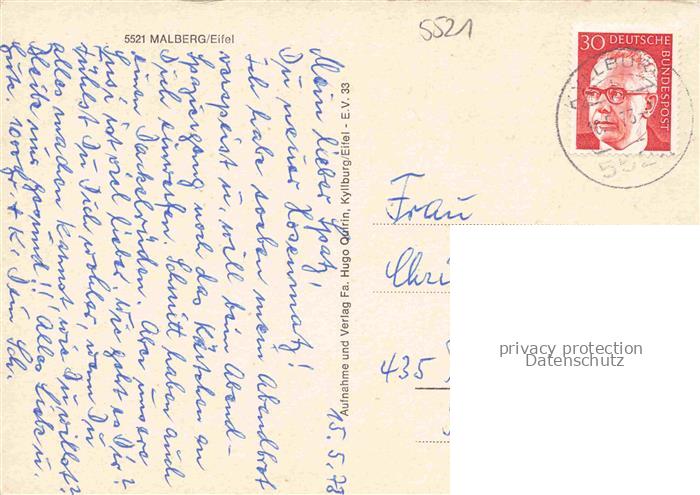 5521
5521 MALBERG/Eifel
30 DEUTSCHE
BUNDESPOST
552
Aufnahme und Verlag Fa. Hugo Quirin, Kyllburg/Eifel - E.V. 33
15. 5. 73
Mein lieber Spatz!
Du neuer Hosenmatz!
Ich habe soeben mein Abendbrot
verspeist u. will beim Abend-
spaziergang noch das Kärtchen an
Dich einwerfen. Schmitt haben auch
einen Dackelrüden. Aber unsere
Susi ist viel lieber. Wie geht es Dir?
Fühlst Du Dich wohler, wenn Du
alles machen kannst, wie Du willst?
Bleibe nur gesund!! Alles Liebe u.
Gute. 1000 gr. + K. Dein Sch.
Frau
Chri
435
privacy protection
Datenschutz